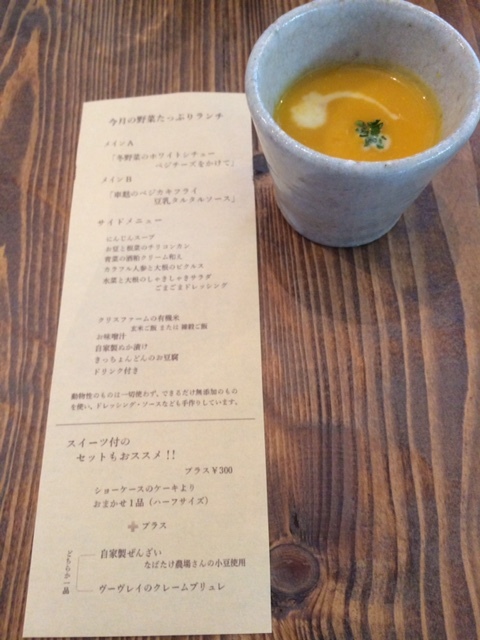 今月の野菜たっぷりランチ
メインA
「冬野菜のホワイトシチュー
ベジチーズをかけて」
メインB
「車麩のベジカキフライ
豆乳タルタルソース」
サイドメニュー
にんじんスープ
お豆と根菜のチリコンカン
青菜の酒粕クリーム和え
カラフル人参と大根のピクルス
水菜と大根のしゃきしゃきサラダ
ごまごまドレッシング
クリスファームの有機米
玄米ご飯 または 雑穀ご飯
お味噌汁
自家製ぬか漬け
きっちょんどんのお豆腐
ドリンク付き
動物性のものは一切使わず、できるだけ無添加のもの
を使い、ドレッシング・ソースなども手作りしています。
スイーツ付の
セットもおススメ!!
プラス¥300
ショーケースのケーキより
おまかせ1品(ハーフサイズ)
+プラス
どちらか一品
自家製ぜんざい
なばたけ農場さんの小豆使用
ヴーヴレイのクレームブリュレ